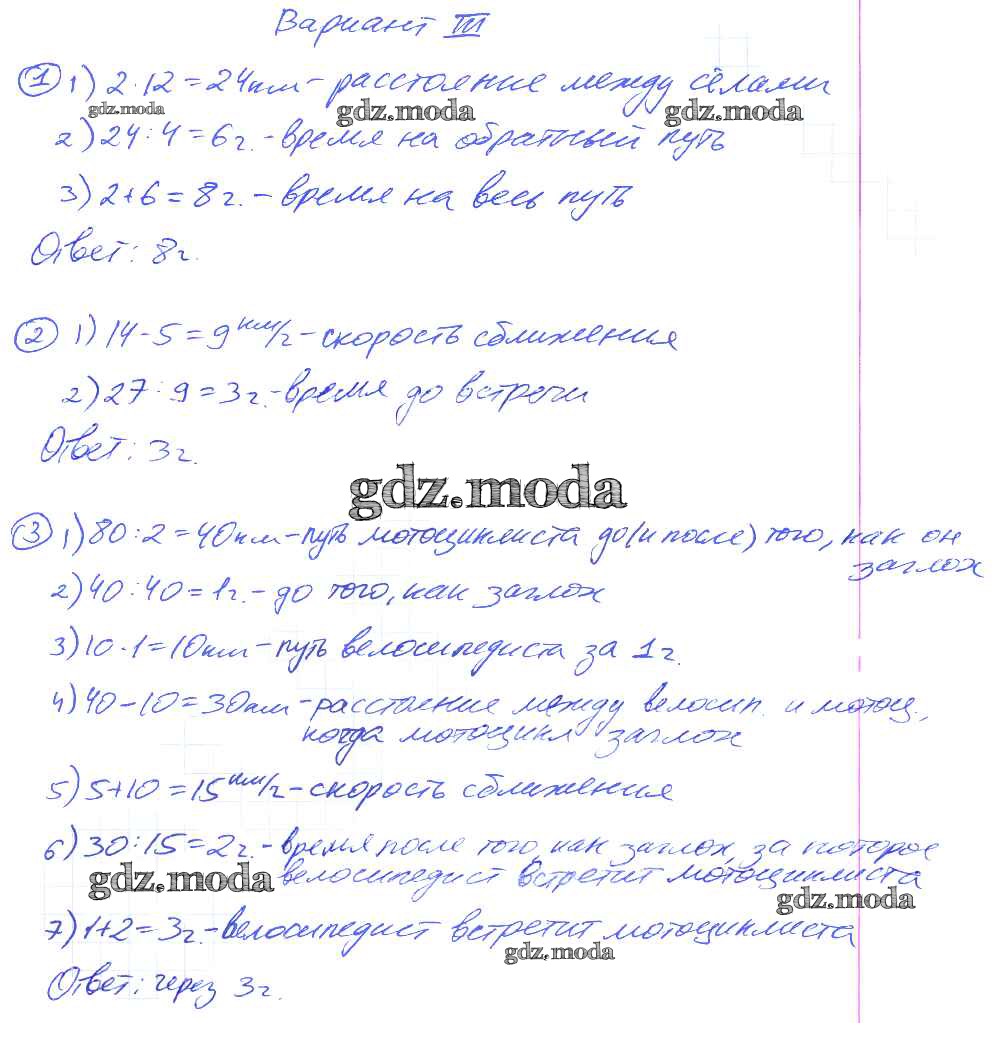 Вариант III
① 1) 2·12=24км - расстояние между сёлами
gdz.moda gdz.moda gdz.moda
2) 24:4=6г. - время на обратный путь
3) 2+6=8г. - время на весь путь
Ответ: 8г.
② 1) 14-5=9км/г - скорость сближения
2) 27:9=3г. - время до встречи
Ответ: 3г.
gdz.moda
③ 1) 80:2=40км - путь мотоциклиста до (и после) того, как он
заглох
2) 40:40=1г. - до того, как заглох
3) 10·1=10км - путь велосипедиста за 1г.
4) 40-10=30км - расстояние между велосип. и мотоц.,
когда мотоцикл заглох
5) 5+10=15км/г - скорость сближения
6) 30:15=2г. - время после того, как заглох, за которое
gdz.moda велосипедист встретит мотоциклиста
gdz.moda
7) 1+2=3г. - велосипедист встретит мотоциклиста
gdz.moda
Ответ: через 3г.